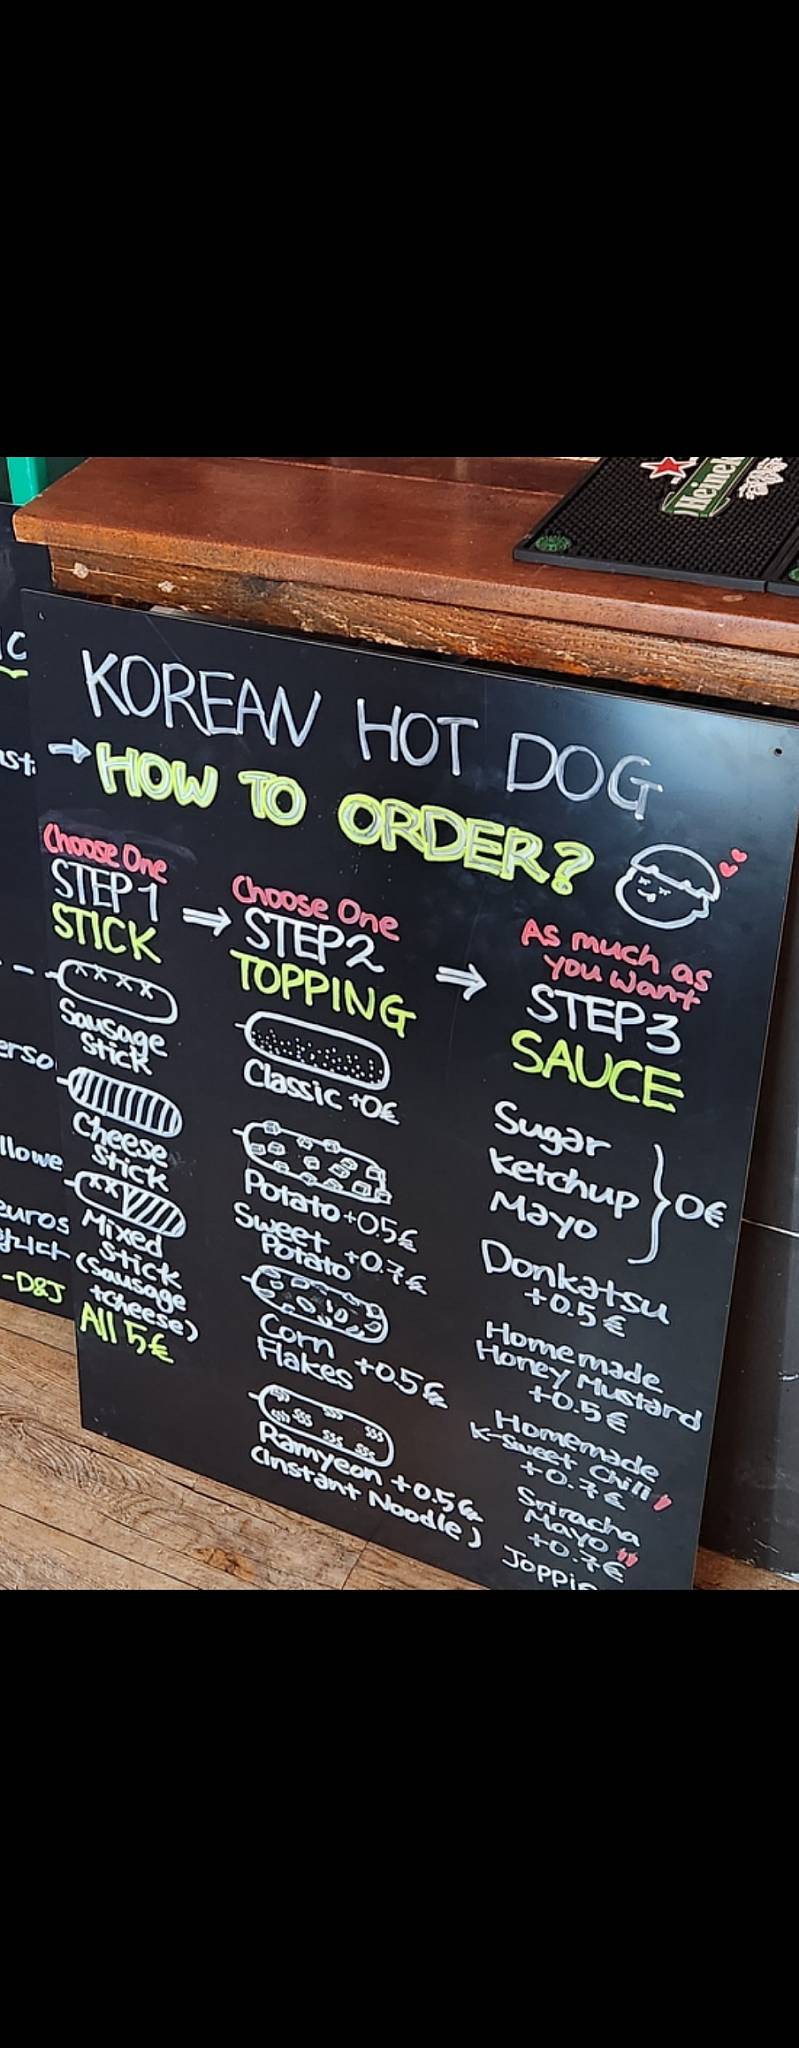 Heineken
KOREAN HOT DOG
HOW TO ORDER?
Choose One
STEP 1
STICK
Sausage
Stick
Cheese
Stick
Mixed
Stick
(Sausage
+Cheese)
All 5€
Choose One
STEP2
TOPPING
Classic +0€
Potato +0.5€
Sweet
Potato +0.7€
Corn
Flakes +0.5€
Ramyeon +0.5€
(Instant Noodle)
As much as
you want
STEP3
SAUCE
Sugar
Ketchup
Mayo
0€
Donkatsu
+0.5€
Homemade
Honey Mustard
+0.5€
Homemade
K-Sweet Chili
+0.7€
Sriracha
Mayo
+0.7€
euros
니다
-D&J